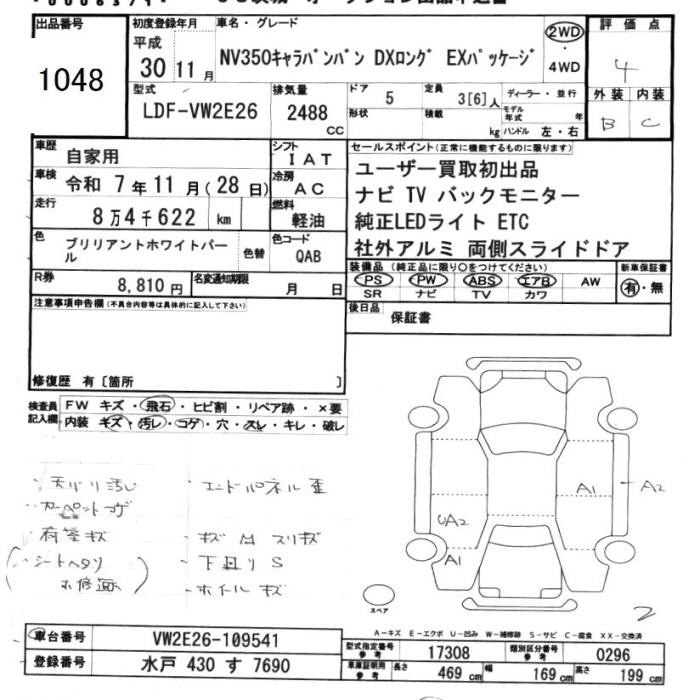 出品番号
1048
初度登録年月
平成
30年11月
車名・グレード
NV350キャラバンバン DXロング EXパッケージ
2WD
4WD
評価点
4
型式
LDF-VW2E26
排気量
2488
CC
ドア
5
定員
3[6]人
ディーラー・並行
形状
積載
kg
モデル年式
年
ハンドル 左・右
外装
内装
B
C
車歴
自家用
シフト
IAT
車検
令和 7年11月(28日)
冷房
AC
走行
8万4千622 km
燃料
軽油
色
ブリリアントホワイトパール
色替
色コード
QAB
R券
8,810円
名変通知期限
月 日
セールスポイント(正常に機能するものに限ります)
ユーザー買取初出品
ナビ TV バックモニター
純正LEDライト ETC
社外アルミ 両側スライドドア
装備品(純正品に限り○をつけてください)
PS
PW
ABS
エアB
AW
SR
ナビ
TV
カワ
新車保証書
有・無
後日品
保証書
注意事項申告欄(不具合内容等は具体的に記入して下さい)
修復歴 有〔箇所 〕
検査員記入欄
FW キズ・飛石・ヒビ割・リペア跡・×要
内装 キズ・汚レ・コゲ・穴・スレ・キレ・破レ
・天バリ汚レ
・カーペットコゲ
・荷室キズ
・シートヘタリ
・エンドパネル歪
・下廻りS
・ホイルキズ
A1
A2
UA2
A1
2
スペア
A-キズ E-エクボ U-凹み W-補修跡 S-サビ C-腐食 XX-交換済
車台番号
VW2E26-109541
登録番号
水戸 430 す 7690
型式指定番号
参考
17308
類別区分番号
参考
0296
車庫証明用
参考
長さ
469 cm
幅
169 cm
高さ
199 cm